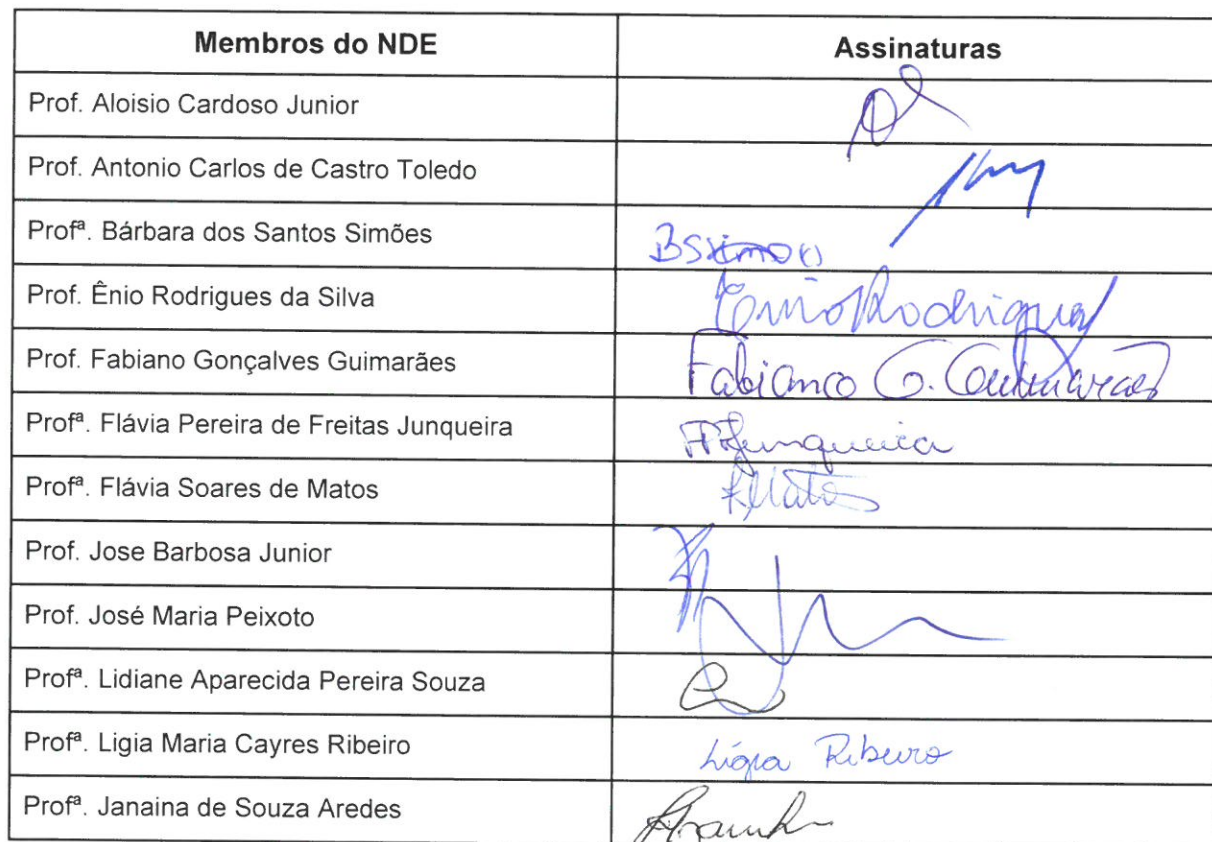 Membros do NDE Assinaturas
Prof. Aloisio Cardoso Junior
Prof. Antonio Carlos de Castro Toledo
Profª. Bárbara dos Santos Simões BSSimões
Prof. Ênio Rodrigues da Silva Ênio Rodrigues
Prof. Fabiano Gonçalves Guimarães Fabiano G. Guimarães
Profª. Flávia Pereira de Freitas Junqueira FFJunqueira
Profª. Flávia Soares de Matos FMatos
Prof. Jose Barbosa Junior
Prof. José Maria Peixoto
Profª. Lidiane Aparecida Pereira Souza
Profª. Ligia Maria Cayres Ribeiro Lígia Ribeiro
Profª. Janaina de Souza Aredes